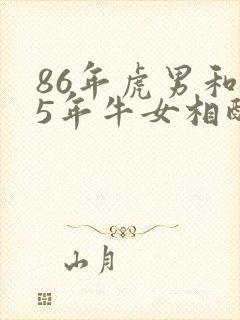 86年虎男和
5年牛女相配
山月